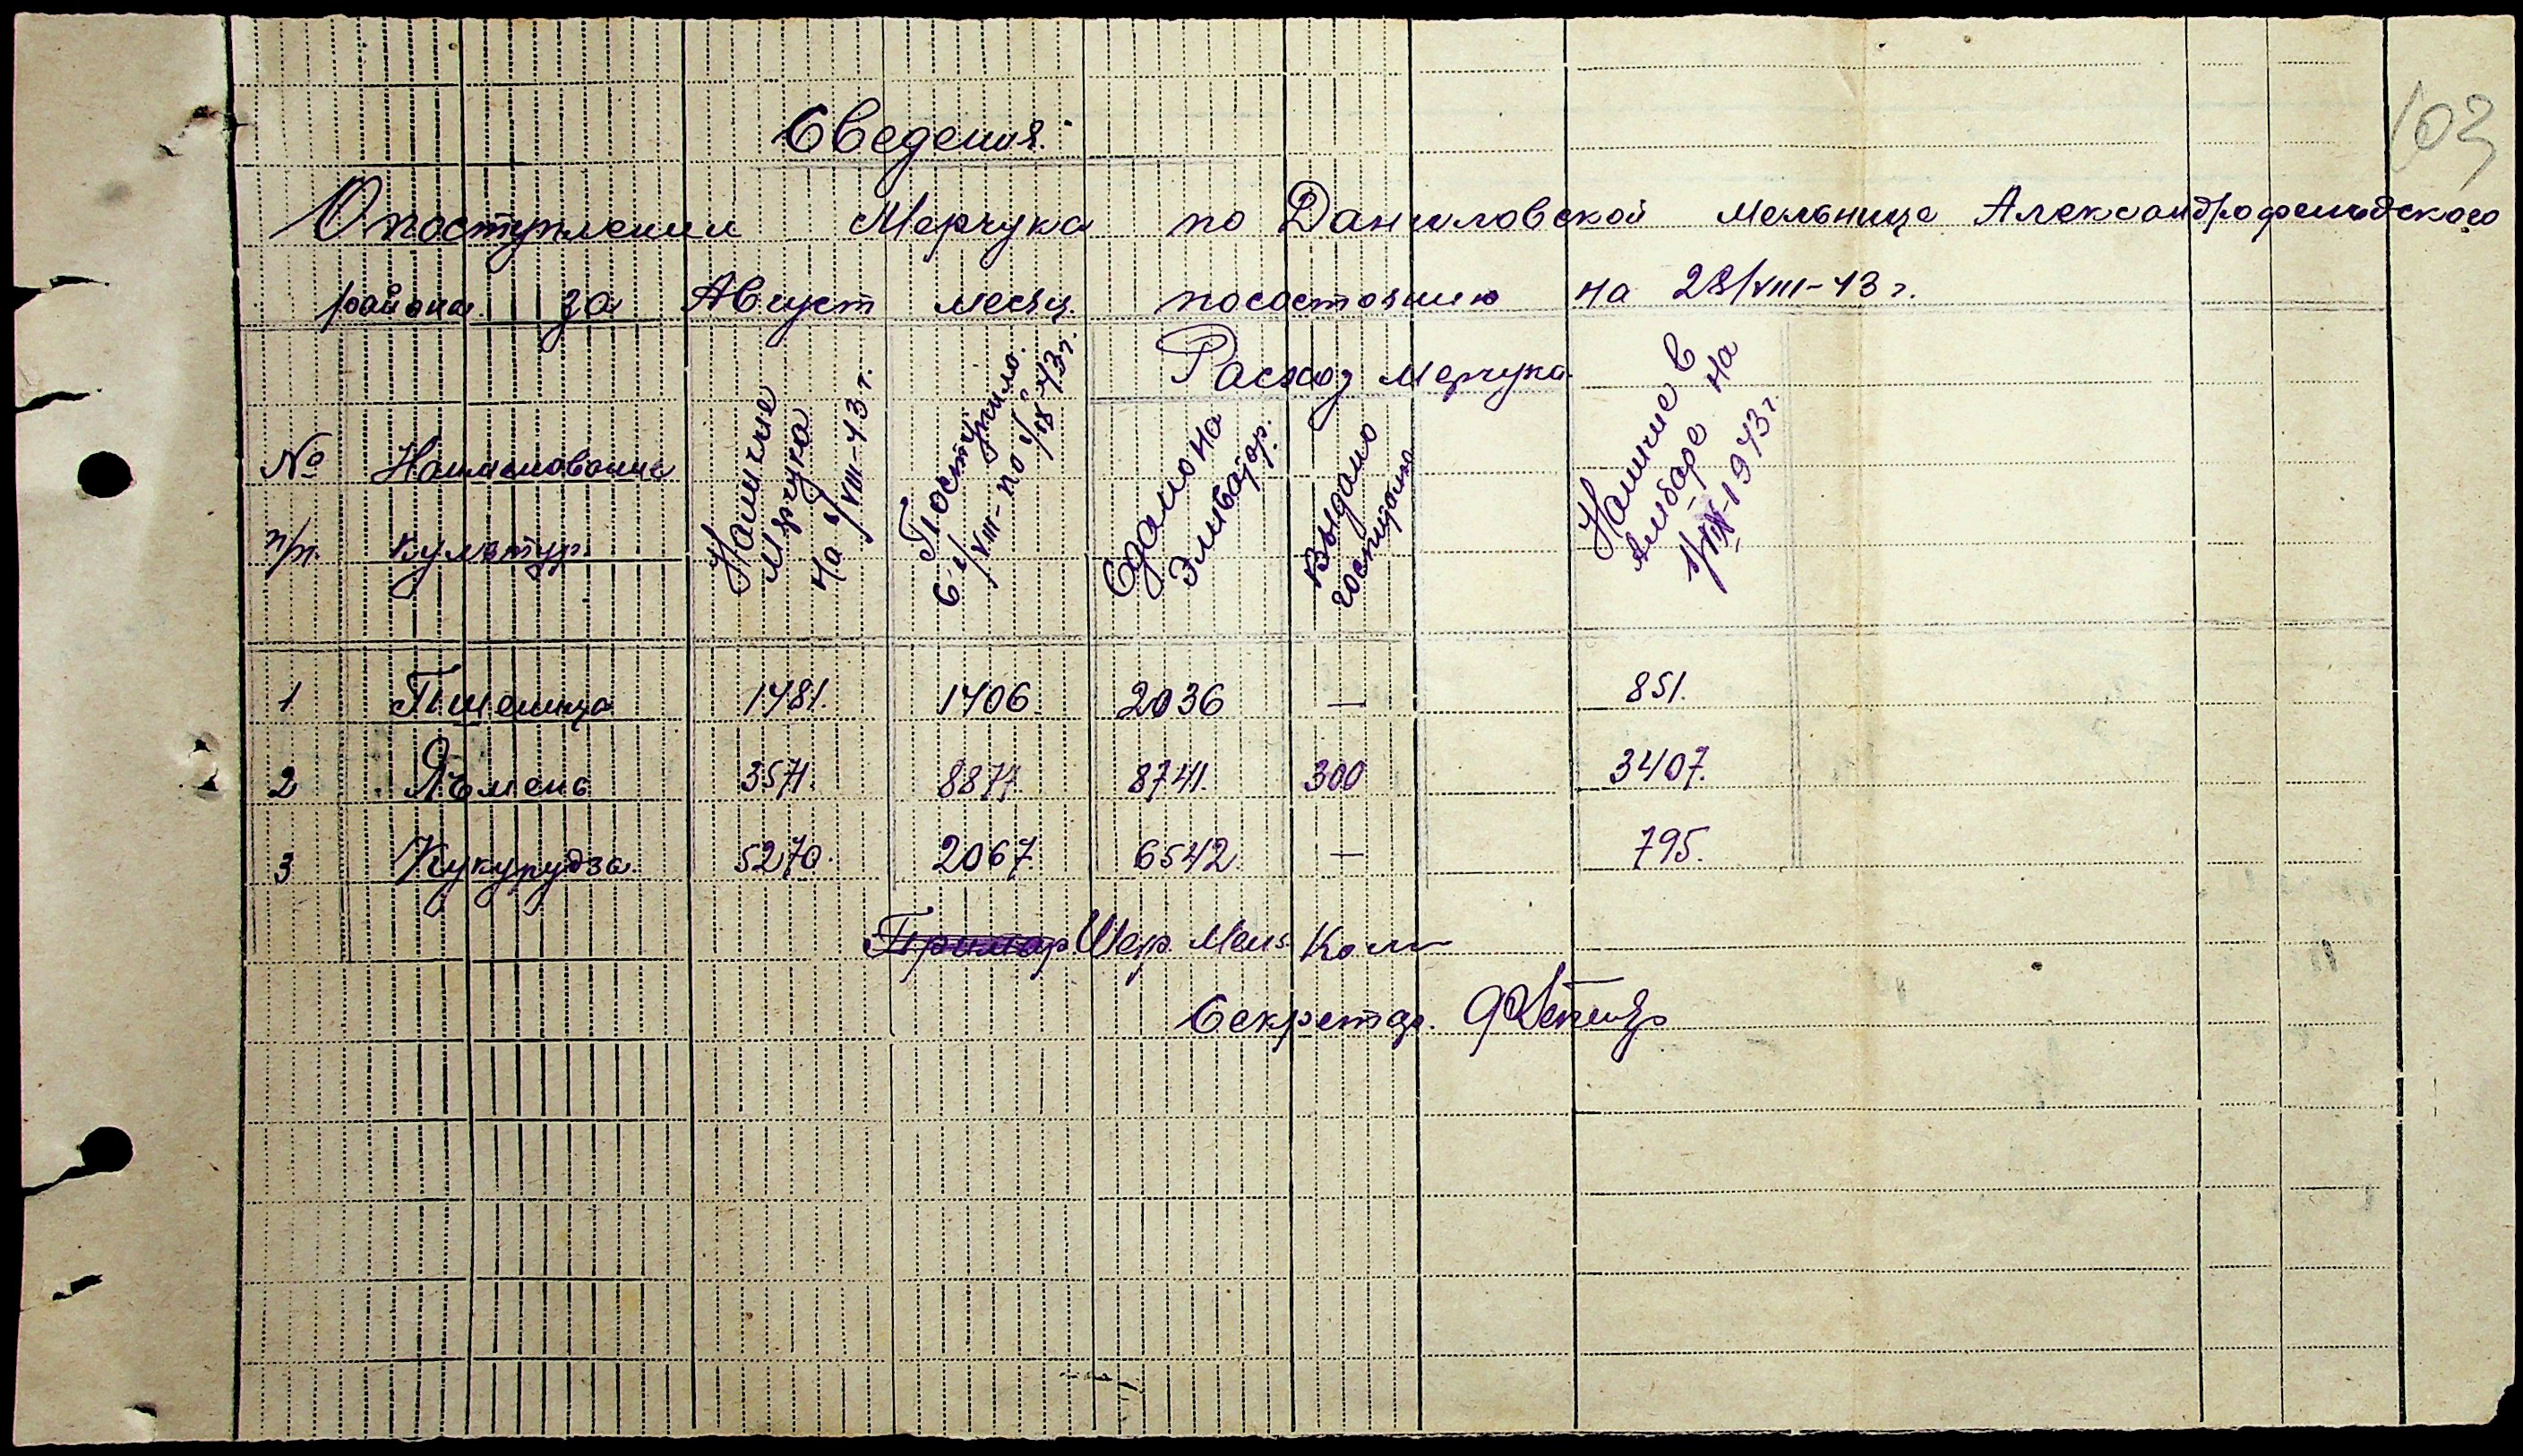 103
Сведения.
О поступлении Мерчука по Даниловской мельнице Александрофельдского
района за Август месяц посостоянию на 28/VIII-43 г.
№ п/п.
Наименование культур
Наличие Мерчука на 1/VIII-43 г.
Поступило. С 1/VIII- по 1/IX-43 г.
Расход мерчука
Сдано на Эливатор.
Выдано госпиталю
Наличие в Амбаре на 1/IX-1943 г.
1 Пшеница 1481. 1406 2036 — 851.
2 Ячмень 3571. 8877. 8741. 300 3407.
3 Кукурудза 5270. 2067 6542. — 795.
Примар Шеф Мель
Секретар.